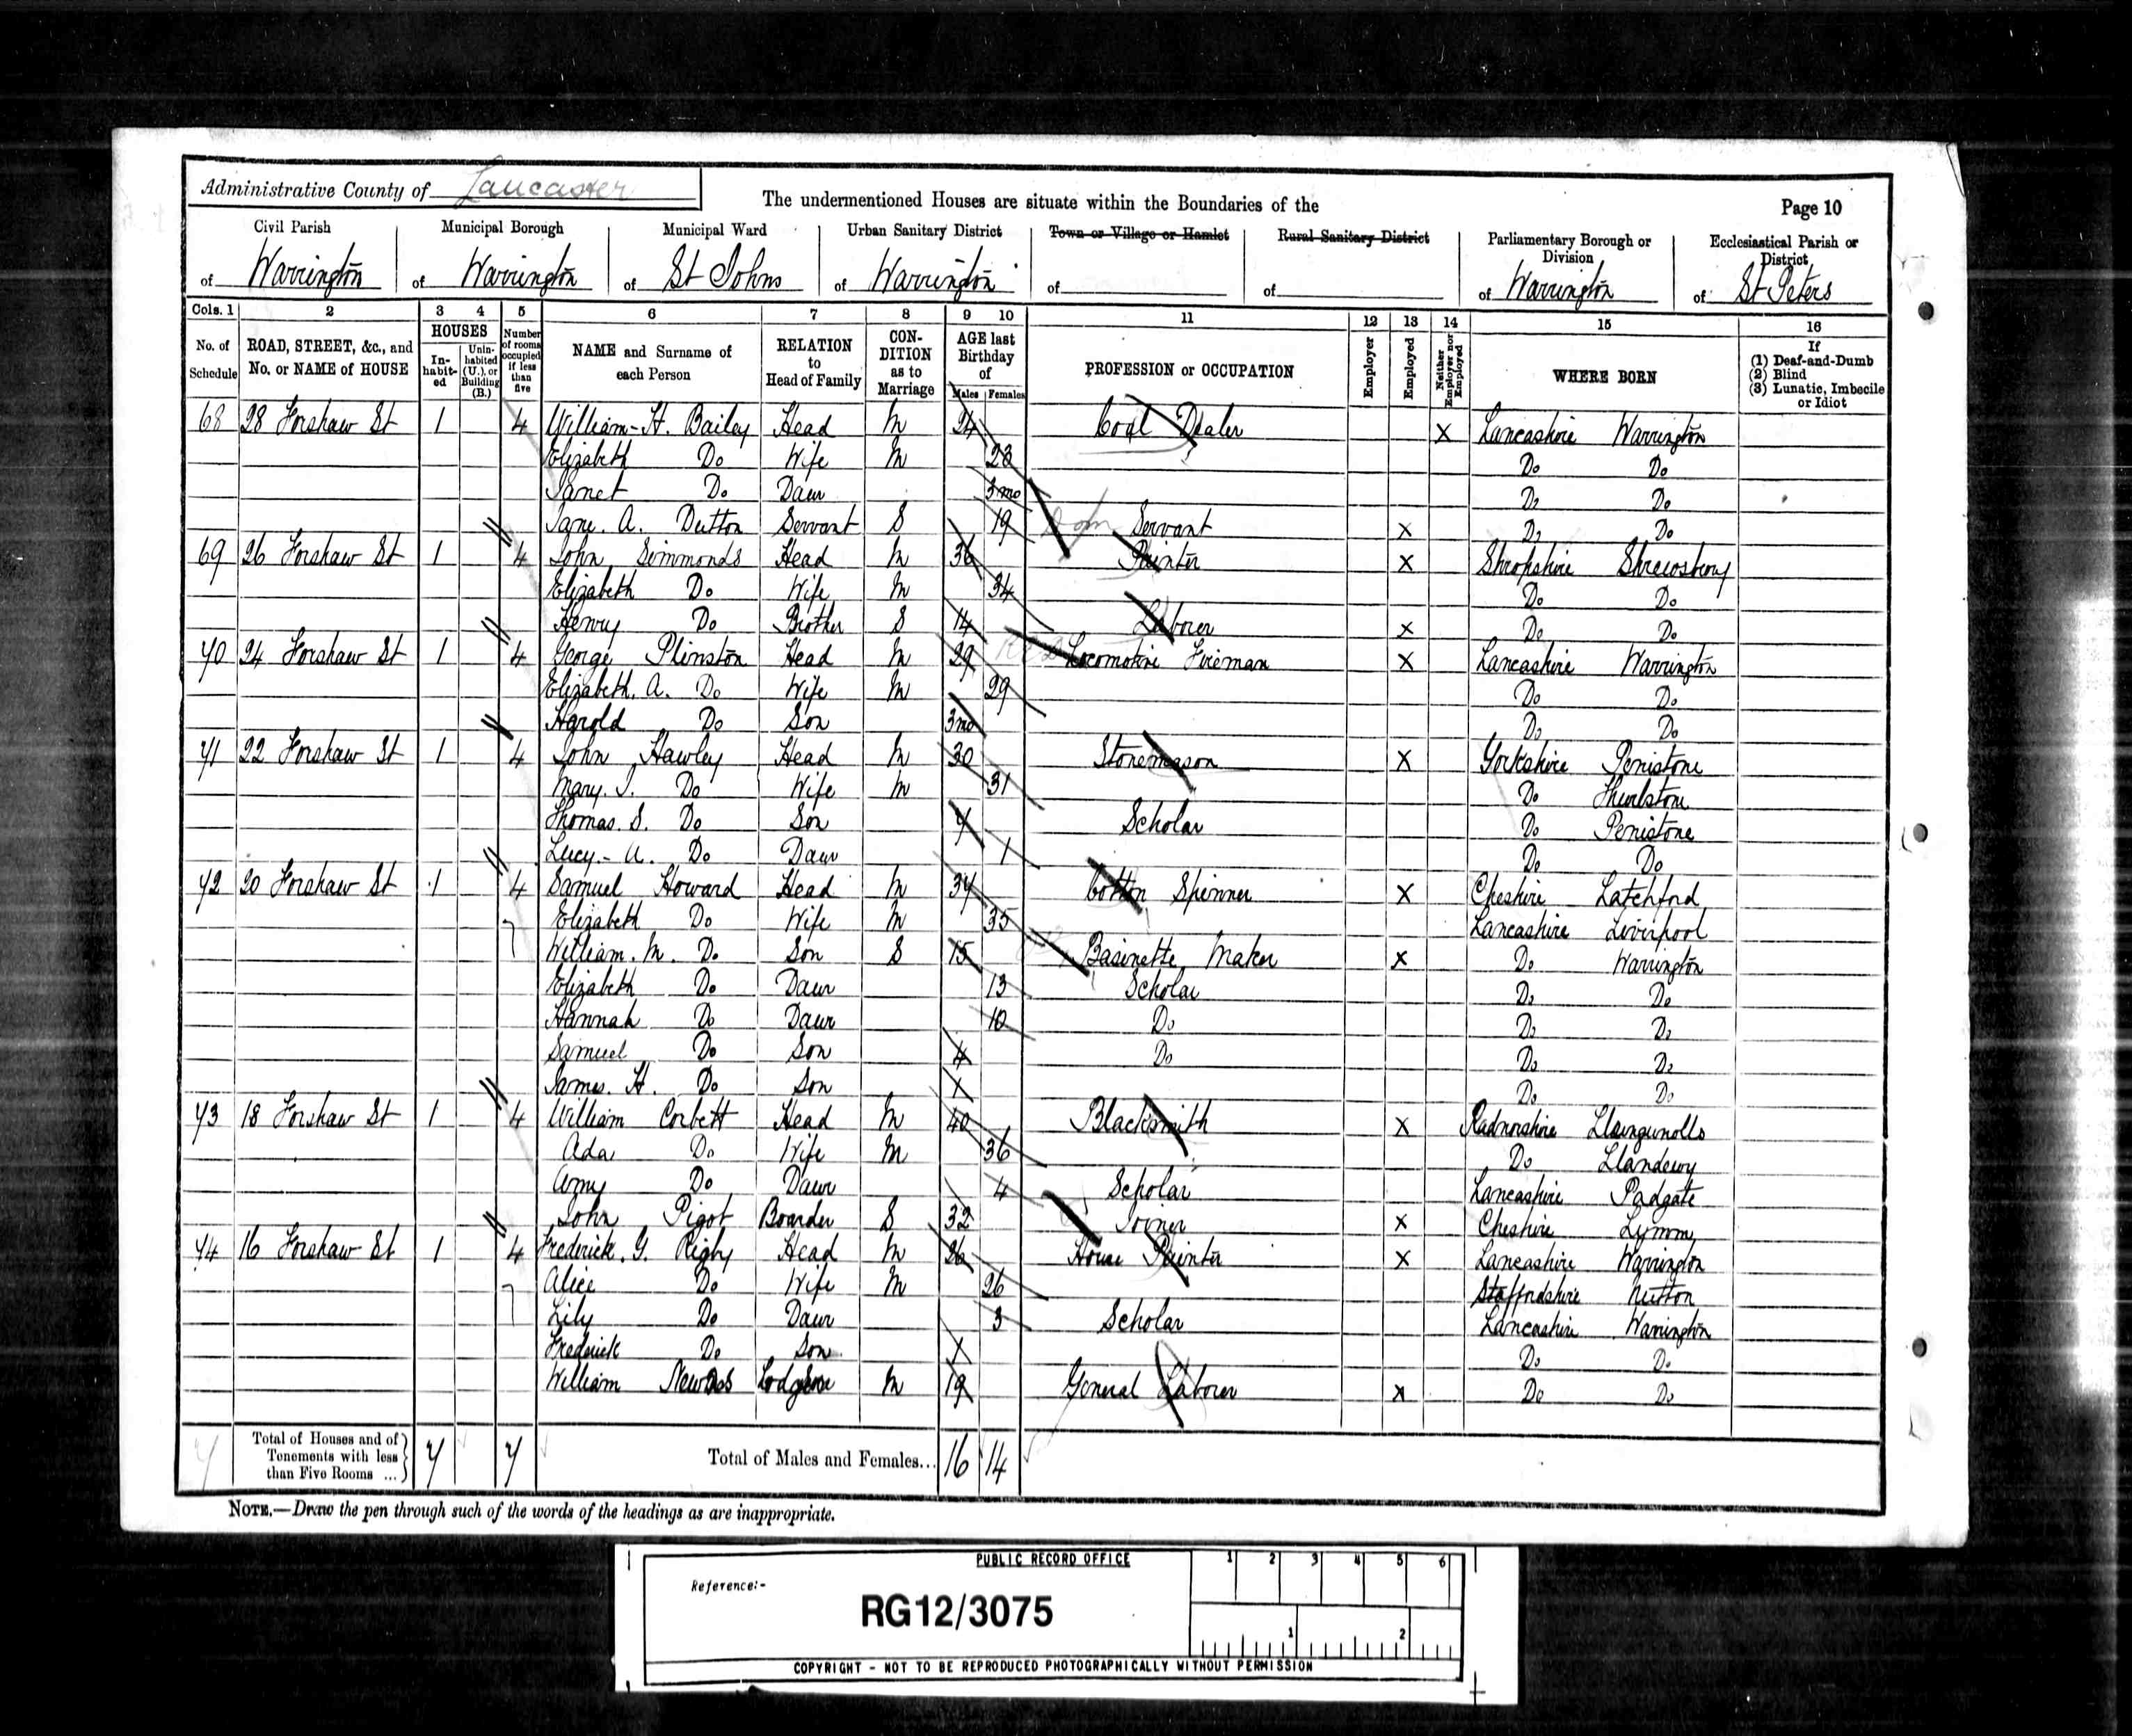 Administrative County of Lancaster
The undermentioned Houses are situate within the Boundaries of the
Page 10
Civil Parish of Warrington
Municipal Borough of Warrington
Municipal Ward of St Johns
Urban Sanitary District of Warrington
Town or Village or Hamlet of
Rural Sanitary District of
Parliamentary Borough or Division of Warrington
Ecclesiastical Parish or District of St Peters
Cols. 1 2 3 4 5 6 7 8 9 10 11 12 13 14 15 16
No. of Schedule
ROAD, STREET, &c., and No. or NAME of HOUSE
HOUSES
In-habit-ed
Unin-habited (U.), or Building (B.)
Number of rooms occupied if less than five
NAME and Surname of each Person
RELATION to Head of Family
CON-DITION as to Marriage
AGE last Birthday of
Males Females
PROFESSION or OCCUPATION
Employer
Employed
Neither Employer nor Employed
WHERE BORN
If (1) Deaf-and-Dumb (2) Blind (3) Lunatic, Imbecile or Idiot
68 28 Forshaw St 1 4 William-H. Bailey Head M 24 Coal Dealer X Lancashire Warrington
Elizabeth Do Wife M 23 Do Do
Janet Do Daur 3mo Do Do
Jane. A. Dutton Servant S 19 Dom Servant X Do Do
69 26 Forshaw St 1 4 John Simmonds Head M 36 Painter X Shropshire Shrewsbury
Elizabeth Do Wife M 34 Do Do
Henry Do Brother S 14 Laborer X Do Do
70 24 Forshaw St 1 4 George Plinston Head M 29 Locomotive Fireman X Lancashire Warrington
Elizabeth. A. Do Wife M 29 Do Do
Harold Do Son 3mo Do Do
71 22 Forshaw St 1 4 John Hawley Head M 30 Stonemason X Yorkshire Penistone
Mary. J. Do Wife M 31 Do Thurlstone
Thomas. S. Do Son 7 Scholar Do Penistone
Lucy-A. Do Daur 1 Do Do
72 20 Forshaw St 1 4 Samuel Howard Head M 37 Cotton Spinner X Cheshire Latchford
Elizabeth Do Wife M 35 Lancashire Liverpool
William. M. Do Son S 15 Basinette Maker X Do Warrington
Elizabeth Do Daur 13 Scholar Do Do
Hannah Do Daur 10 Do Do Do
Samuel Do Son 4 Do Do Do
James. H. Do Son 1 Do Do
73 18 Forshaw St 1 4 William Corbett Head M 40 Blacksmith X Radnorshire
Ada Do Wife M 36 Do Llandewy
Amy Do Daur 4 Scholar Lancashire Padgate
John Pigot Boarder S 32 Joiner X Cheshire Lymm
74 16 Forshaw St 1 4 Frederick. G. Rigby Head M 26 House Painter X Lancashire Warrington
Alice Do Wife M 26 Staffordshire
Lily Do Daur 3 Scholar Lancashire Warrington
Frederick Do Son 1 Do Do
William Lodger M 19 General Laborer X Do Do
7 Total of Houses and of Tenements with less than Five Rooms ... 7 7 Total of Males and Females... 16 14
NOTE.—Draw the pen through such of the words of the headings as are inappropriate.
PUBLIC RECORD OFFICE
1 2 3 4 5 6
Reference:-
RG12/3075
1 2
COPYRIGHT - NOT TO BE REPRODUCED PHOTOGRAPHICALLY WITHOUT PERMISSION